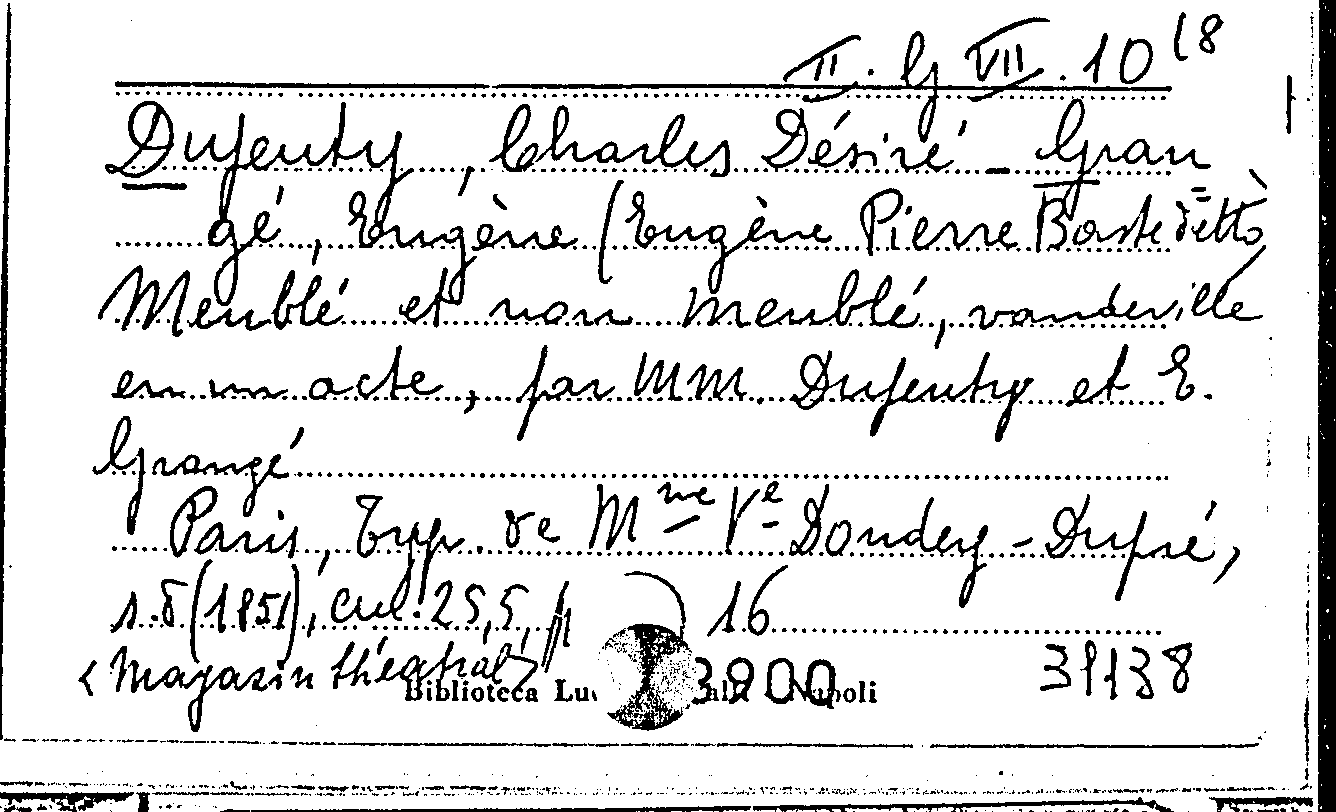 II. G VII. 10 (8
Dujeuty, Charles Désiré - Gran
gé, Eugène (Eugène Pierre Baste detto
Meublé et non meublé, vaudeville
en un acte, par MM. Dujeuty et E.
Grangé
Paris, Typ. de Mme Ve Dondey-Dupré,
s.d (1851), cm. 25,5, 16
<Magasin théatral>
Biblioteca Luc 3900 Napoli 39138